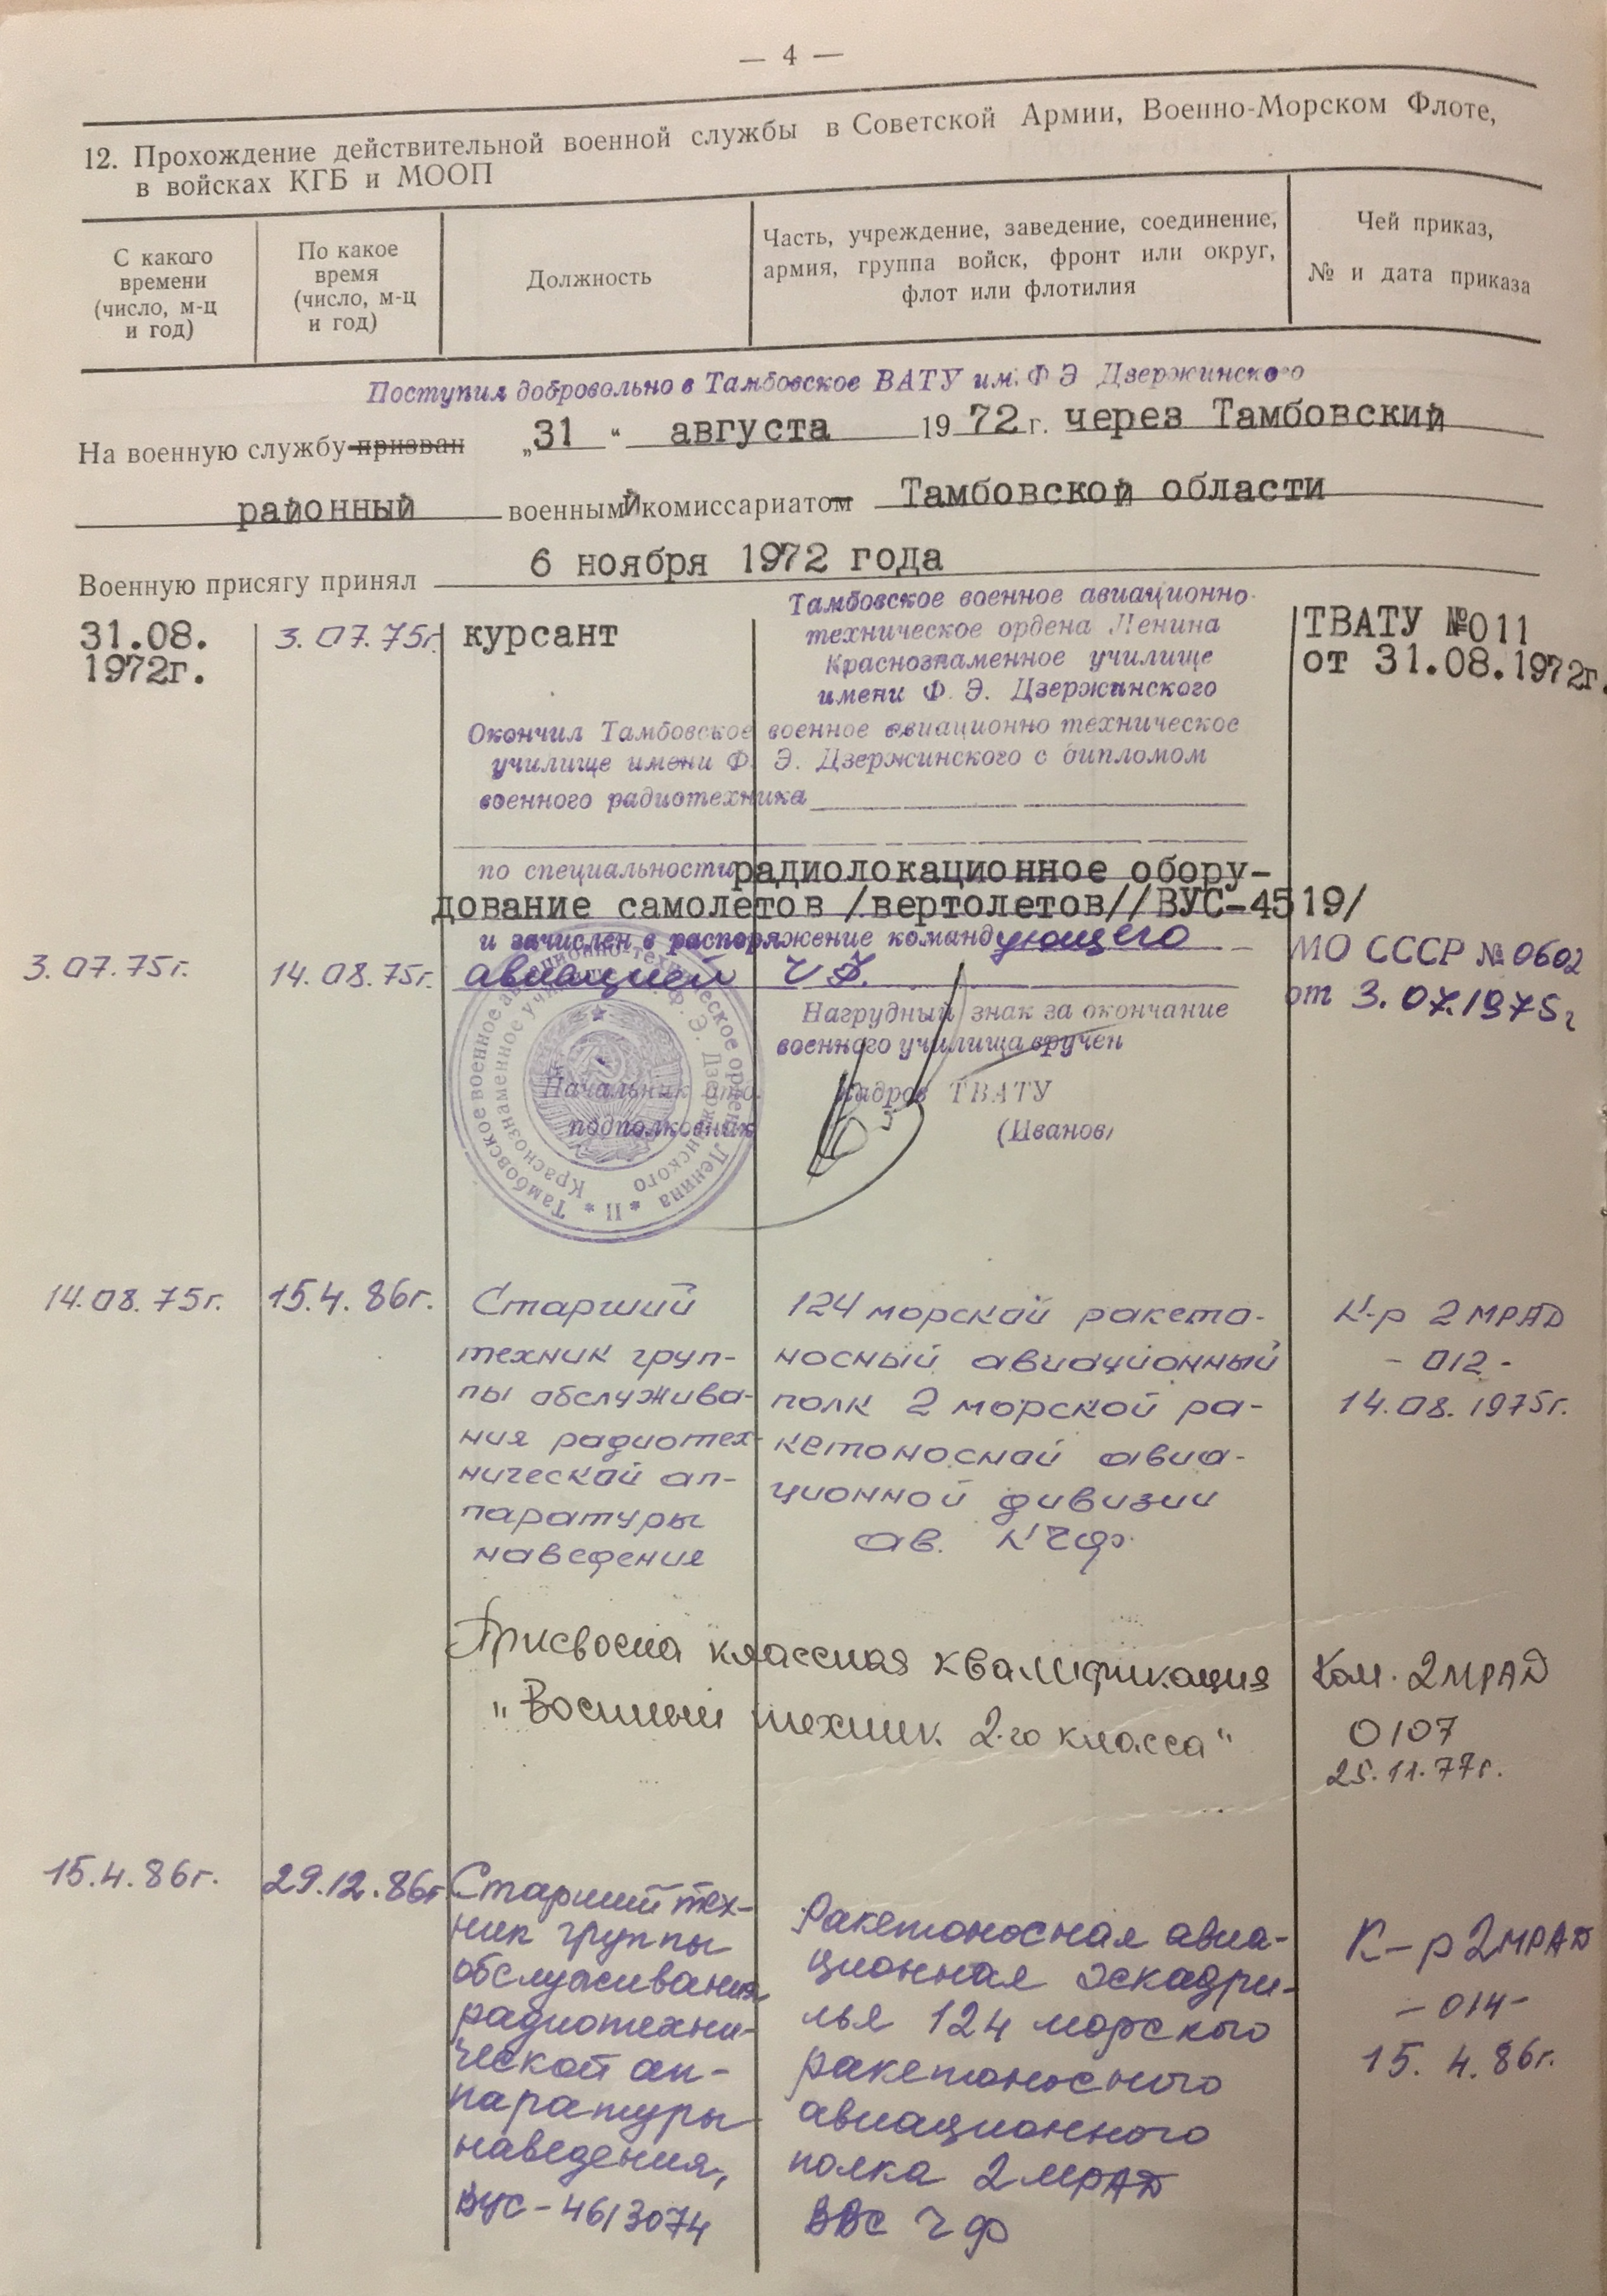 — 4 —
12. Прохождение действительной военной службы в Советской Армии, Военно-Морском Флоте,
в войсках КГБ и МООП
С какого
времени
(число, м-ц
и год)
По какое
время
(число, м-ц
и год)
Должность
Часть, учреждение, заведение, соединение,
армия, группа войск, фронт или округ,
флот или флотилия
Чей приказ,
№ и дата приказа
Поступил добровольно в Тамбовское ВАТУ им. Ф Э Дзержинского
На военную службу призван „31" августа 1972 г. через Тамбовский
районный военнымй комиссариатом Тамбовской области
Военную присягу принял 6 ноября 1972 года
31.08.
1972г.
3.07.75г.
курсант
Тамбовское военное авиационно-
техническое ордена Ленина
Краснознаменное училище
имени Ф. Э. Дзержинского
ТВАТУ №011
от 31.08.1972г.
Окончил Тамбовское военное авиационно техническое
училище имени Ф. Э. Дзержинского с дипломом
военного радиотехника
по специальности радиолокационное обору-
дование самолетов /вертолетов//ВУС-4519/
и зачислен в распоряжение командующего
3.07.75г.
14.08.75г.
авиацией ЧФ.
МО СССР № 0602
от 3.07.1975г
Нагрудный знак за окончание
военного училища вручен
Начальник отд. кадров ТВАТУ
подполковник (Иванов)
Тамбовское военное авиационно-техническое ордена Ленина
Краснознаменное училище Ф. Э. Дзержинского
* II *
14.08.75г.
15.4.86г.
Старший
техник груп-
пы обслужива-
ния радиотех-
нической ап-
паратуры
наведения
124 морской ракето-
носный авиационный
полк 2 морской ра-
кетоносной авиа-
ционной дивизии
ав. КЧФ.
К-р 2 МРАД
- 012 -
14.08.1975г.
Присвоена классная квалификация
„Военный техник 2-го класса"
Ком. 2МРАД
0107
25.11.77г.
15.4.86г.
29.12.86г
Старший тех-
ник группы
обслуживания
радиотехни-
ческой ап-
паратуры
наведения,
ВУС-4613074
Ракетоносная авиа-
ционная эскадри-
лья 124 морского
ракетоносного
авиационного
полка 2 МРАД
ВВС ЧФ
К-р 2МРАД
- 014 -
15.4.86г.